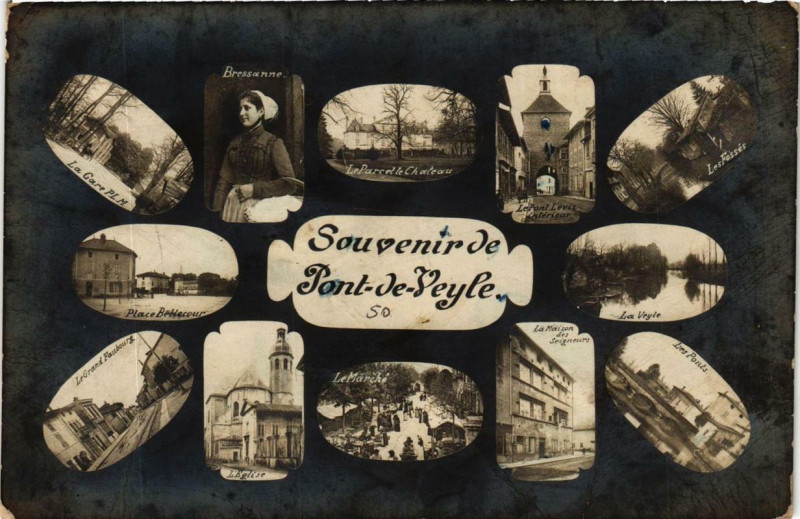 La Gare P.L.M
Bressanne.
Le Parc et le Chateau
Le Pont Levis
Intérieur
Les Fossés
Souvenir de
Pont-de-Veyle.
50
Place Bellecour
La Veyle
Le Grand Faubourg
L'Eglise
Le Marché
La Maison
des
Seigneurs
Les Ponts